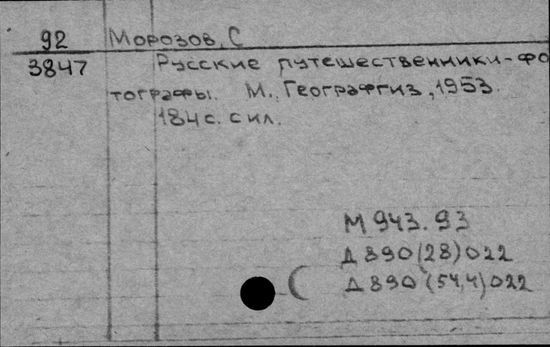 92 Морозов, С
3847 Русские путешественники-фо
тографы. М., Географгиз, 1953.
184 с. с ил.
М 943.93
Д 890(28)022
Д 890(54,4)022